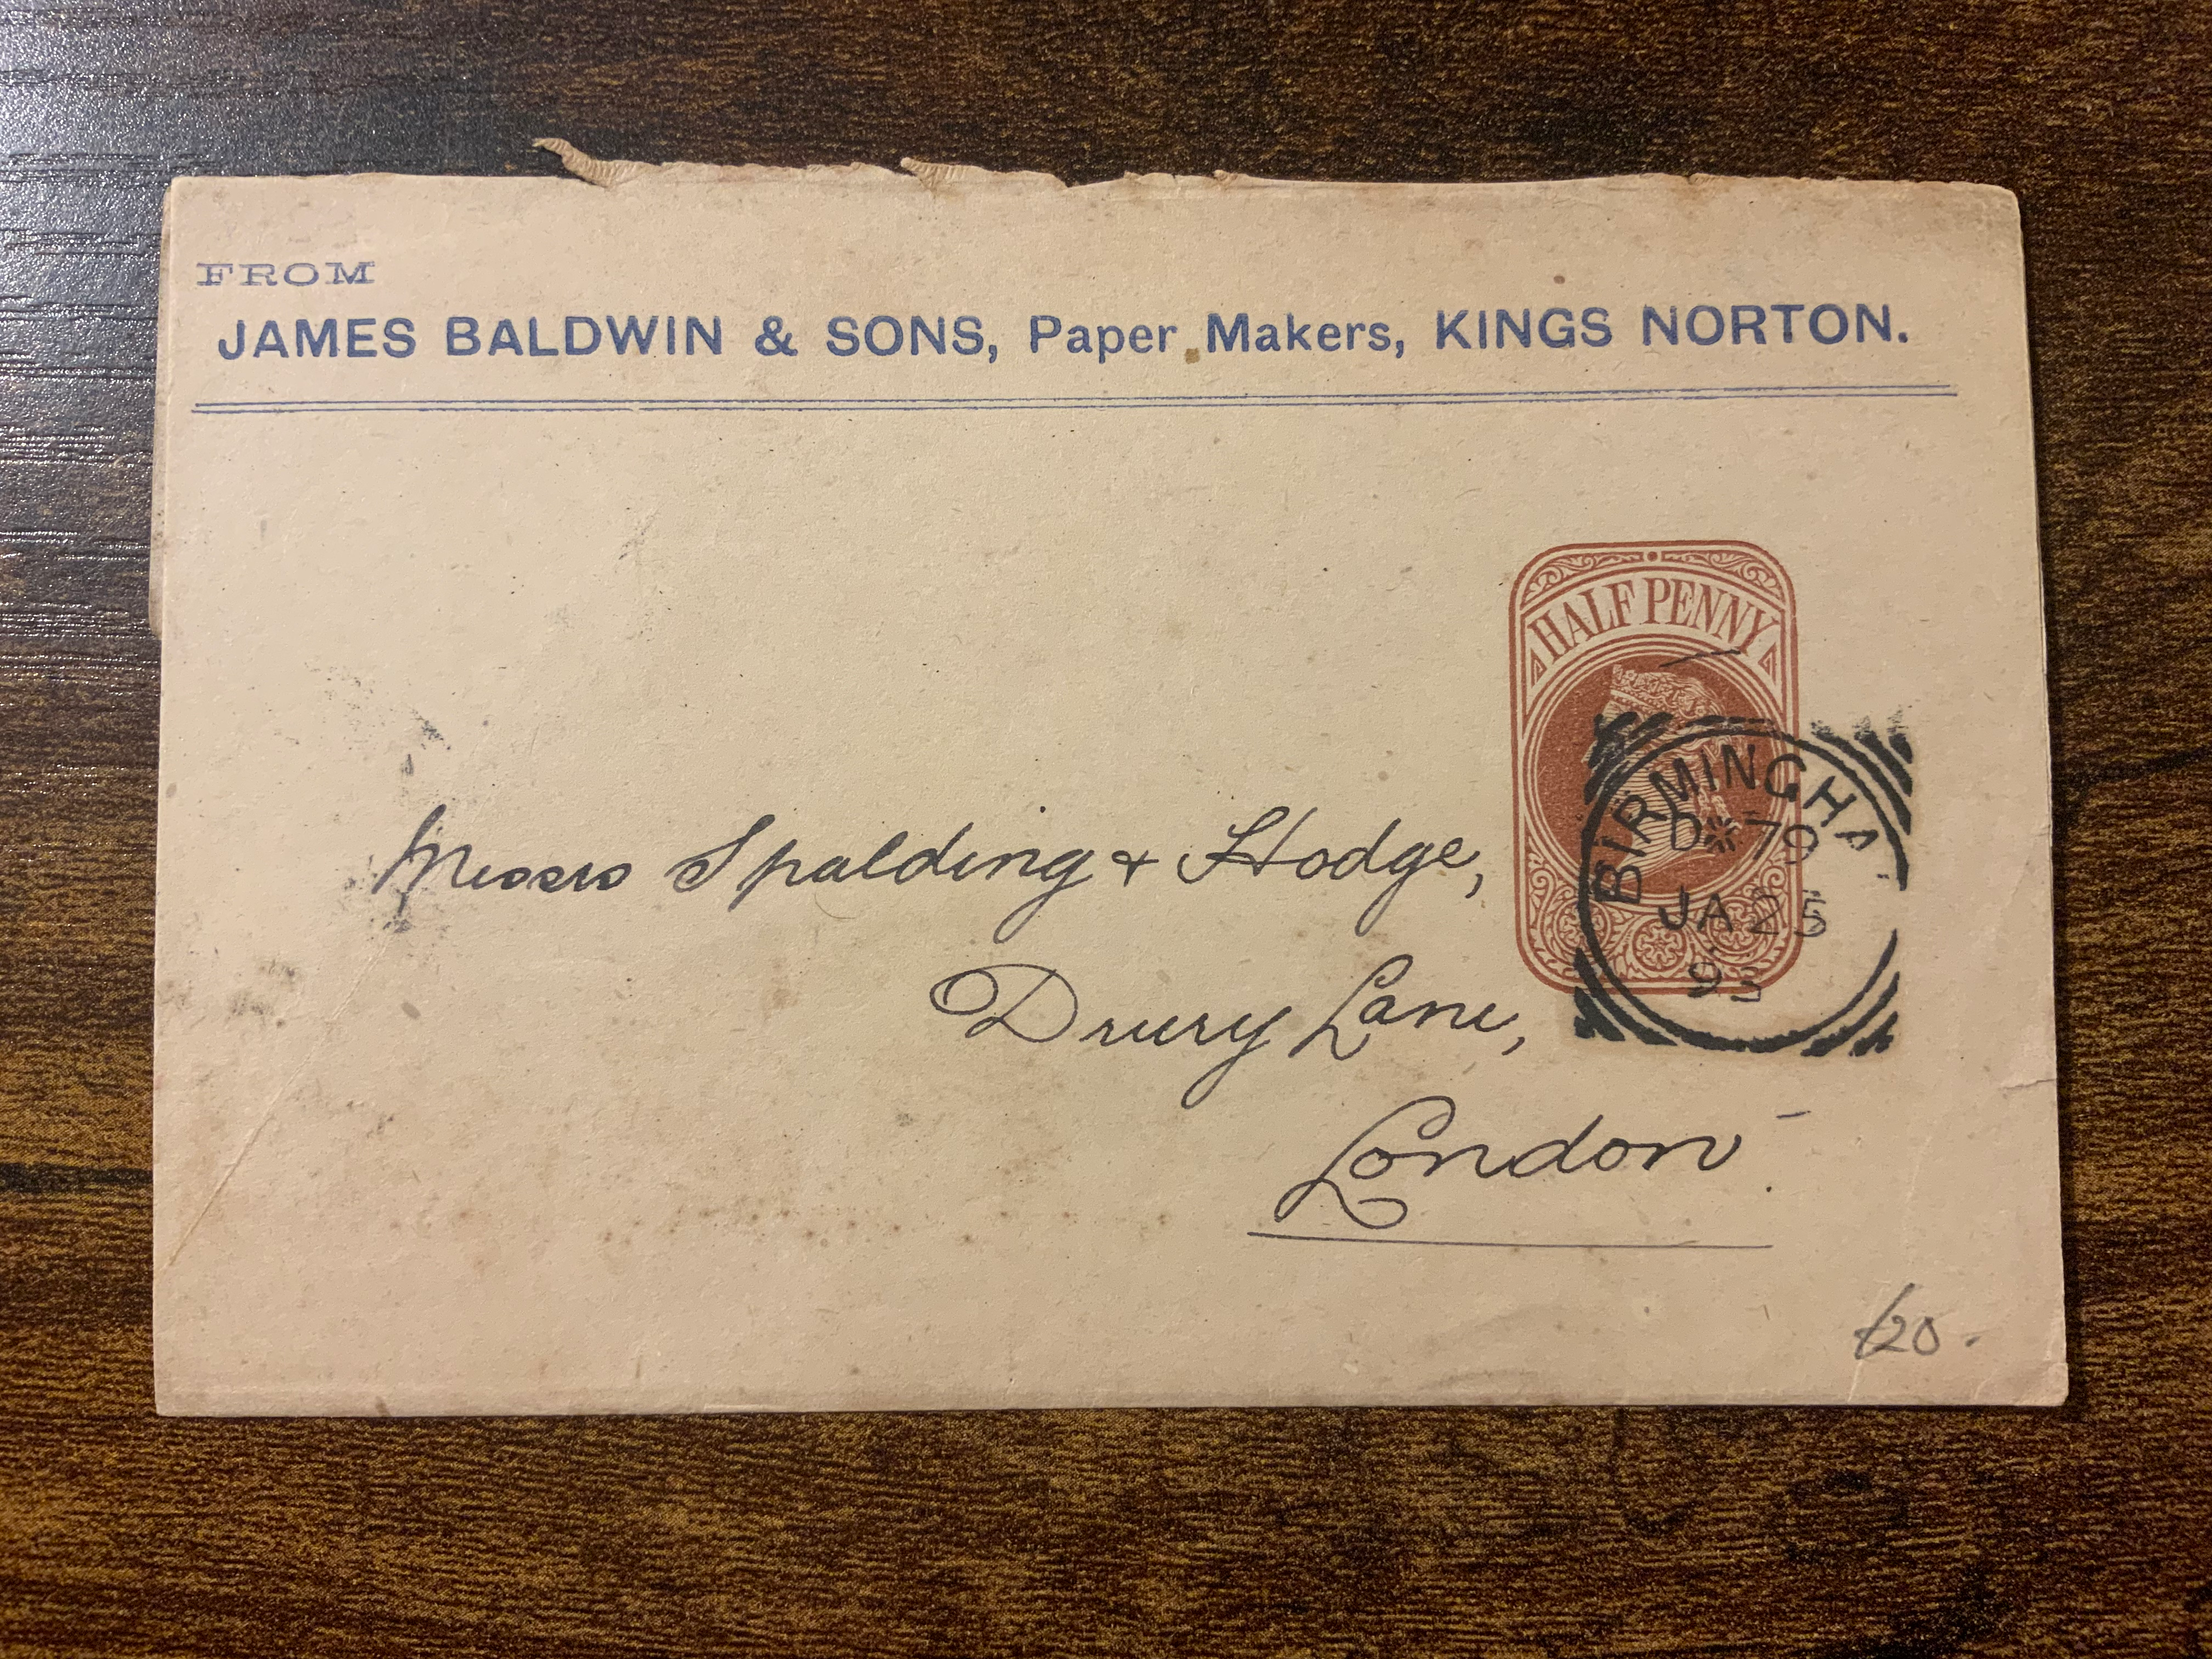 FROM
JAMES BALDWIN & SONS, Paper Makers, KINGS NORTON.
HALFPENNY
BIRMINGHA
D 79
JA 25
93
Messrs Spalding & Hodge,
Drury Lane,
London
£20.